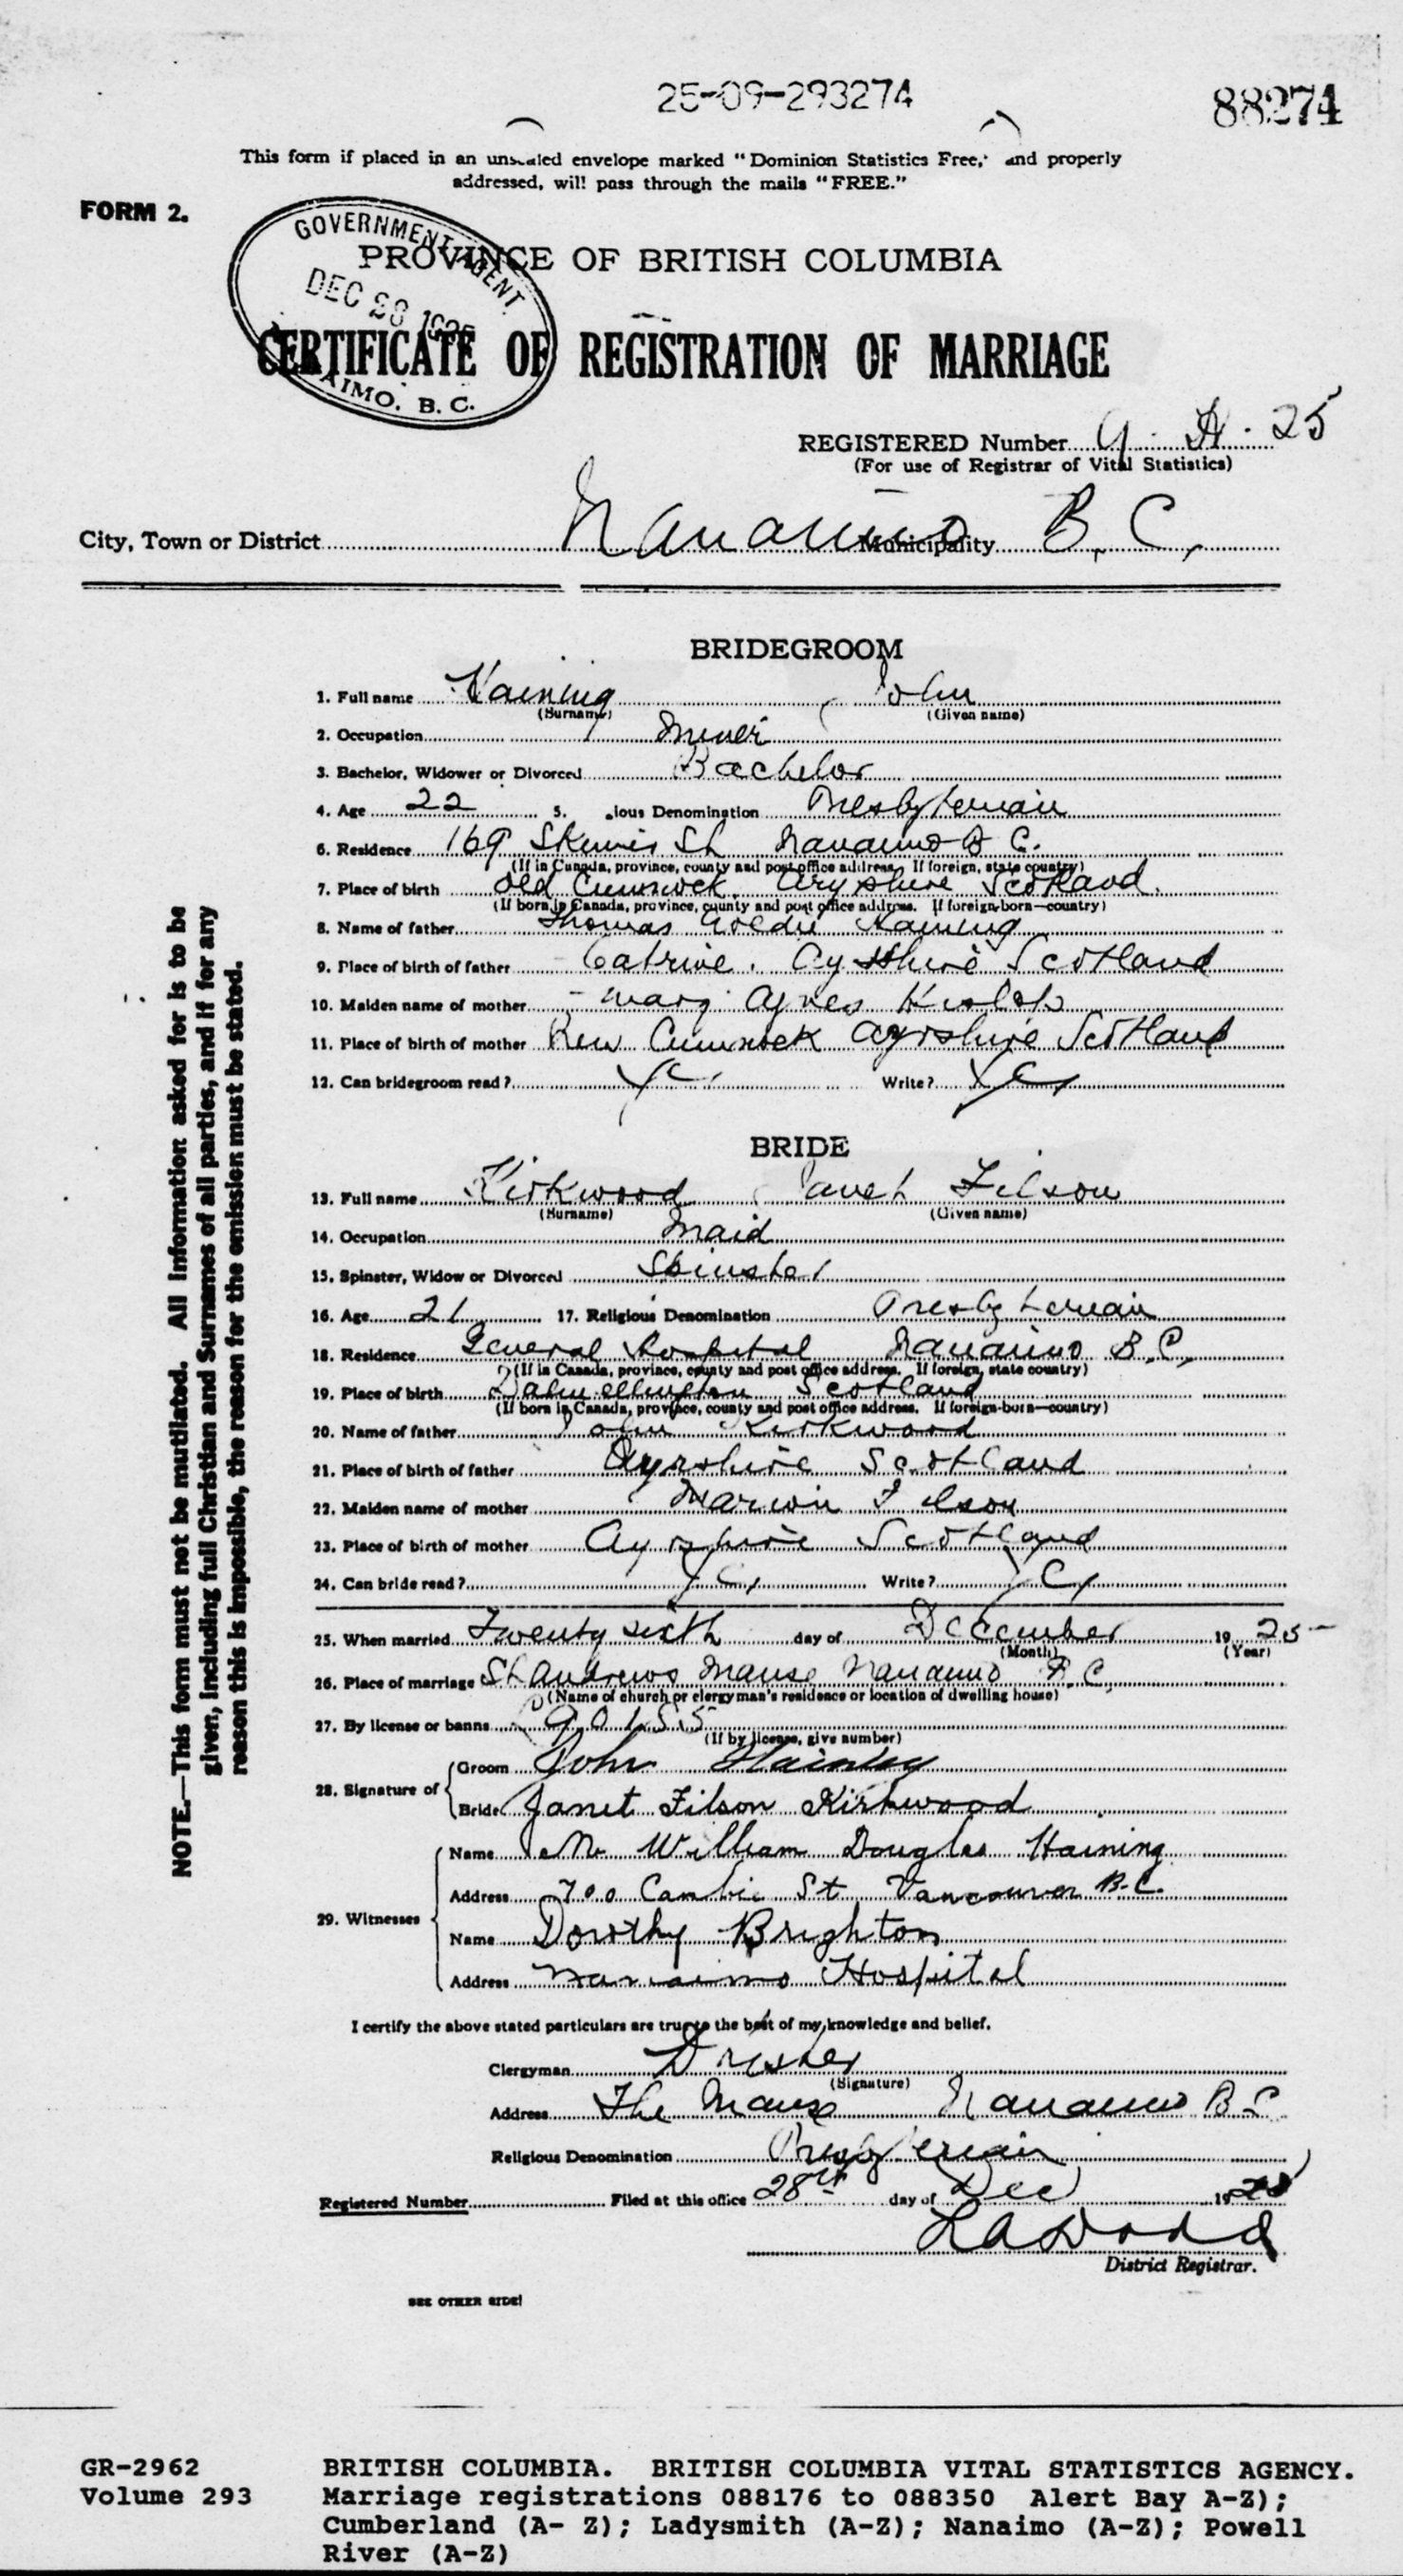 25-09-293274
88274
This form if placed in an unsealed envelope marked "Dominion Statistics Free," and properly
addressed, will pass through the mails "FREE."
FORM 2.
GOVERNMENT AGENT
DEC 28 1925
NAIMO. B. C.
PROVINCE OF BRITISH COLUMBIA
CERTIFICATE OF REGISTRATION OF MARRIAGE
REGISTERED Number 25
(For use of Registrar of Vital Statistics)
City, Town or District Nanaimo Municipality B. C.
NOTE.—This form must not be mutilated. All information asked for is to be
given, including full Christian and Surnames of all parties, and if for any
reason this is impossible, the reason for the omission must be stated.
BRIDEGROOM
1. Full name Haining John
(Surname) (Given name)
2. Occupation Miner
3. Bachelor, Widower or Divorced Bachelor
4. Age 22 5. ious Denomination Presbyterian
6. Residence 169 St Nanaimo B C.
(If in Canada, province, county and post office address. If foreign, state country)
7. Place of birth Old Cumnock Aryshire Scotland
(If born in Canada, province, county and post office address. If foreign-born—country)
8. Name of father Thomas Goldie Haining
9. Place of birth of father Catrine. Ayrshire Scotland
10. Maiden name of mother Mary Agnes
11. Place of birth of mother New Cumnock Ayrshire Scotland
12. Can bridegroom read? Yes Write? Yes
BRIDE
13. Full name Kirkwood Janet Filson
(Surname) (Given name)
14. Occupation Maid
15. Spinster, Widow or Divorced Spinster
16. Age 21 17. Religious Denomination Presbyterian
18. Residence General Hospital Nanaimo B.C.
(If in Canada, province, county and post office address. If foreign, state country)
19. Place of birth Dalmellington Scotland
(If born in Canada, province, county and post office address. If foreign-born—country)
20. Name of father John Kirkwood
21. Place of birth of father Ayrshire Scotland
22. Maiden name of mother Marion Filson
23. Place of birth of mother Ayrshire Scotland
24. Can bride read? Yes Write? Yes
25. When married Twenty sixth day of December 19 25
(Month) (Year)
26. Place of marriage St Andrews Manse Nanaimo B.C.
(Name of church or clergyman's residence or location of dwelling house)
27. By license or banns
(If by license, give number)
28. Signature of Groom John Haining
Bride Janet Filson Kirkwood
29. Witnesses
Name Mr William Douglas Haining
Address 700 Cambie St Vancouver B.C.
Name Dorothy Brighton
Address Nanaimo Hospital
I certify the above stated particulars are true to the best of my knowledge and belief.
Clergyman
(Signature)
Address The Manse Nanaimo B C
Religious Denomination Presbyterian
Registered Number Filed at this office 28th day of Dec 1925
District Registrar.
SEE OTHER SIDE!
GR-2962 BRITISH COLUMBIA. BRITISH COLUMBIA VITAL STATISTICS AGENCY.
Volume 293 Marriage registrations 088176 to 088350 Alert Bay A-Z);
Cumberland (A- Z); Ladysmith (A-Z); Nanaimo (A-Z); Powell
River (A-Z)